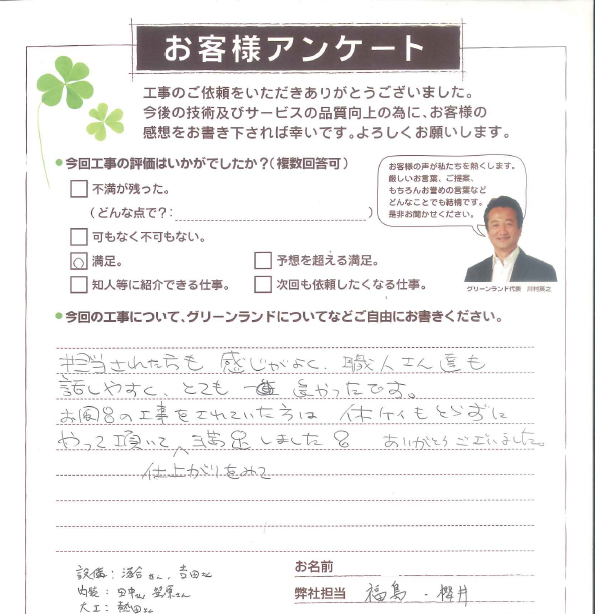 お客様アンケート
工事のご依頼をいただきありがとうございました。
今後の技術及びサービスの品質向上の為に、お客様の
感想をお書き下されば幸いです。よろしくお願いします。
●今回工事の評価はいかがでしたか？（複数回答可）
不満が残った。
（どんな点で？：　）
可もなく不可もない。
○ 満足。
予想を超える満足。
知人等に紹介できる仕事。
次回も依頼したくなる仕事。
お客様の声が私たちを熱くします。
厳しいお言葉、ご提案、
もちろんお誉めの言葉など
どんなことでも結構です。
是非お聞かせください。
グリーンランド代表　川村英之
●今回の工事について、グリーンランドについてなどご自由にお書きください。
担当された方も 感じがよく、職人さん達も
話しやすく、とても 良かったです。
お風呂の工事をされていた方は 休ケイもとらずに
やって頂いて 満足しました ありがとうございました。
仕上がりをみて
設備: 落合さん, 吉田さん
内装: 田中さん
大工:
お名前
弊社担当 福島 ・ 櫻井